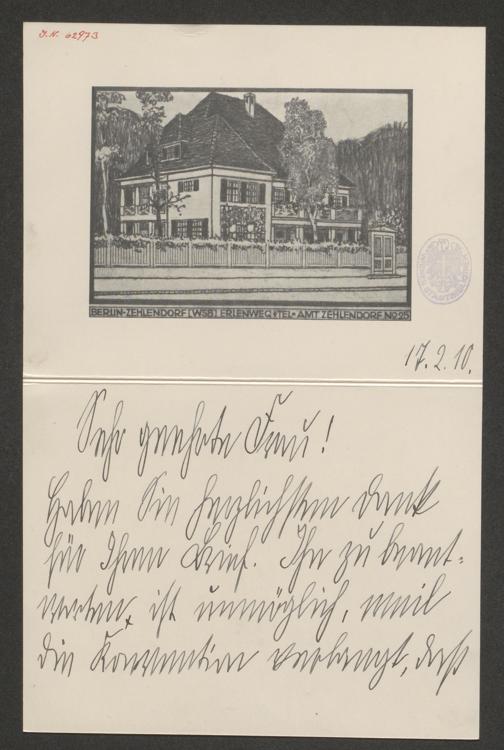 J.N. 62973
BERLIN-ZEHLENDORF (WSB) ERLENWEG * TEL * AMT ZEHLENDORF NO 25
17.2.10.
Sehr geehrte Frau!
Haben Sie herzlichsten Dank
für Ihren Brief. Ihn zu beant-
worten, ist unmöglich, weil
die Konvention verlangt, daß